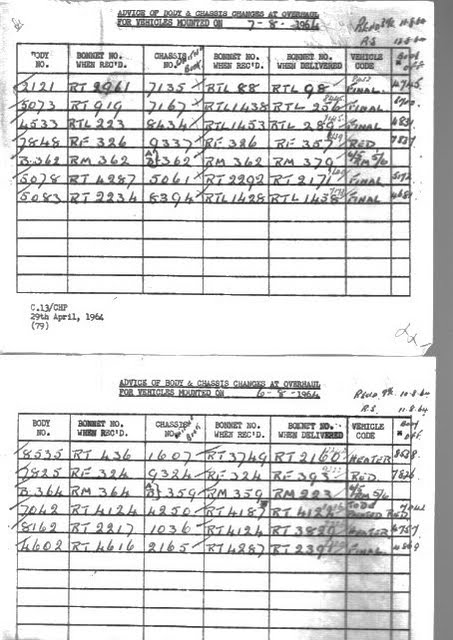 ADVICE OF BODY & CHASSIS CHANGES AT OVERHAUL
FOR VEHICLES MOUNTED ON 7-8-1964
11-8-64
R.S. 11-8-64
BODY NO. BONNET NO. WHEN REC'D. CHASSIS NO. BONNET NO. WHEN REC'D. BONNET NO. WHEN DELIVERED VEHICLE CODE Body off
2121 RT 2961 7135 RTL 88 RTL 98 FINAL 4745
5073 RT 919 7167 RTL 1438 RTL 256 FINAL
4533 RTL 223 8434 RTL 1453 RTL 28 FINAL
7848 RF 326 9337 RF 326 RF 357 RED 7827
B.362 RM 362 362 RM 362 RM 379 RM 5/6
5078 RT 4287 5061 RT 2292 RT 2171 FINAL
5083 RT 2234 8394 RTL 1428 RTL 1458 FINAL
C.13/CHP
29th April, 1964
(79)
ADVICE OF BODY & CHASSIS CHANGES AT OVERHAUL
FOR VEHICLES MOUNTED ON 6-8-1964
11-8-64
R.S. 11-8-64
BODY NO. BONNET NO. WHEN REC'D. CHASSIS NO. BONNET NO. WHEN REC'D. BONNET NO. WHEN DELIVERED VEHICLE CODE Body off
8535 RT 436 1607 RT 3749 RT 2160 HEATER
7825 RF 324 9324 RF 324 RF 393 RED 7826
B.364 RM 364 359 RM 359 RM 223 RM 5/6
7042 RT 4124 4250 RT 4187 RT 412 RED 7042
8162 RT 2217 1036 RT 4124 RT 3820 HEATER
4602 RT 4616 2165 RT 4287 RT 239 FINAL